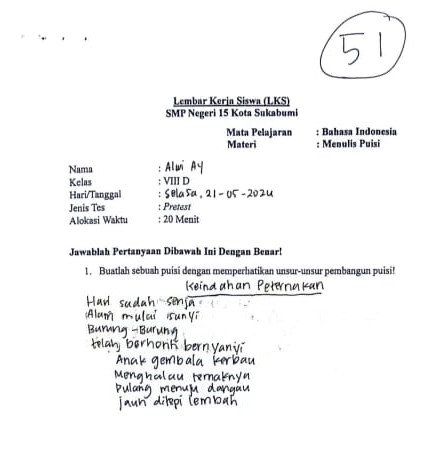 51
Lembar Kerja Siswa (LKS)
SMP Negeri 15 Kota Sukabumi
Mata Pelajaran : Bahasa Indonesia
Materi : Menulis Puisi
Nama : Alwi Ay
Kelas : VIII D
Hari/Tanggal : Selasa, 21-05-2024
Jenis Tes : Pretest
Alokasi Waktu : 20 Menit
Jawablah Pertanyaan Dibawah Ini Dengan Benar!
1. Buatlah sebuah puisi dengan memperhatikan unsur-unsur pembangun puisi!
Keindahan Peternakan
Hari sudah senja
Alam mulai sunyi
Burung-Burung
telah berhenti bernyanyi
Anak gembala kerbau
Menghalau ternaknya
Pulang menuju dangau
jauh ditepi lembah